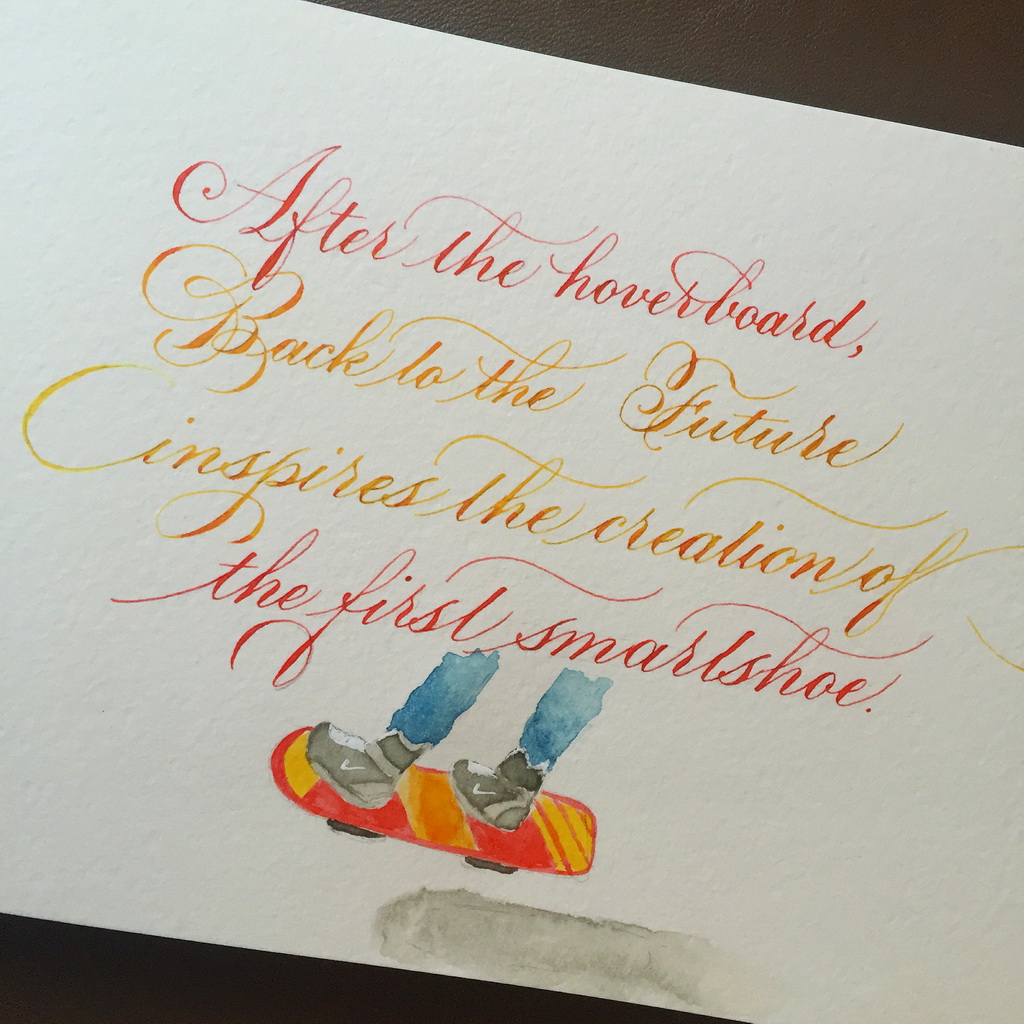 After the hoverboard,
Back to the Future
inspires the creation of
the first smartshoe.